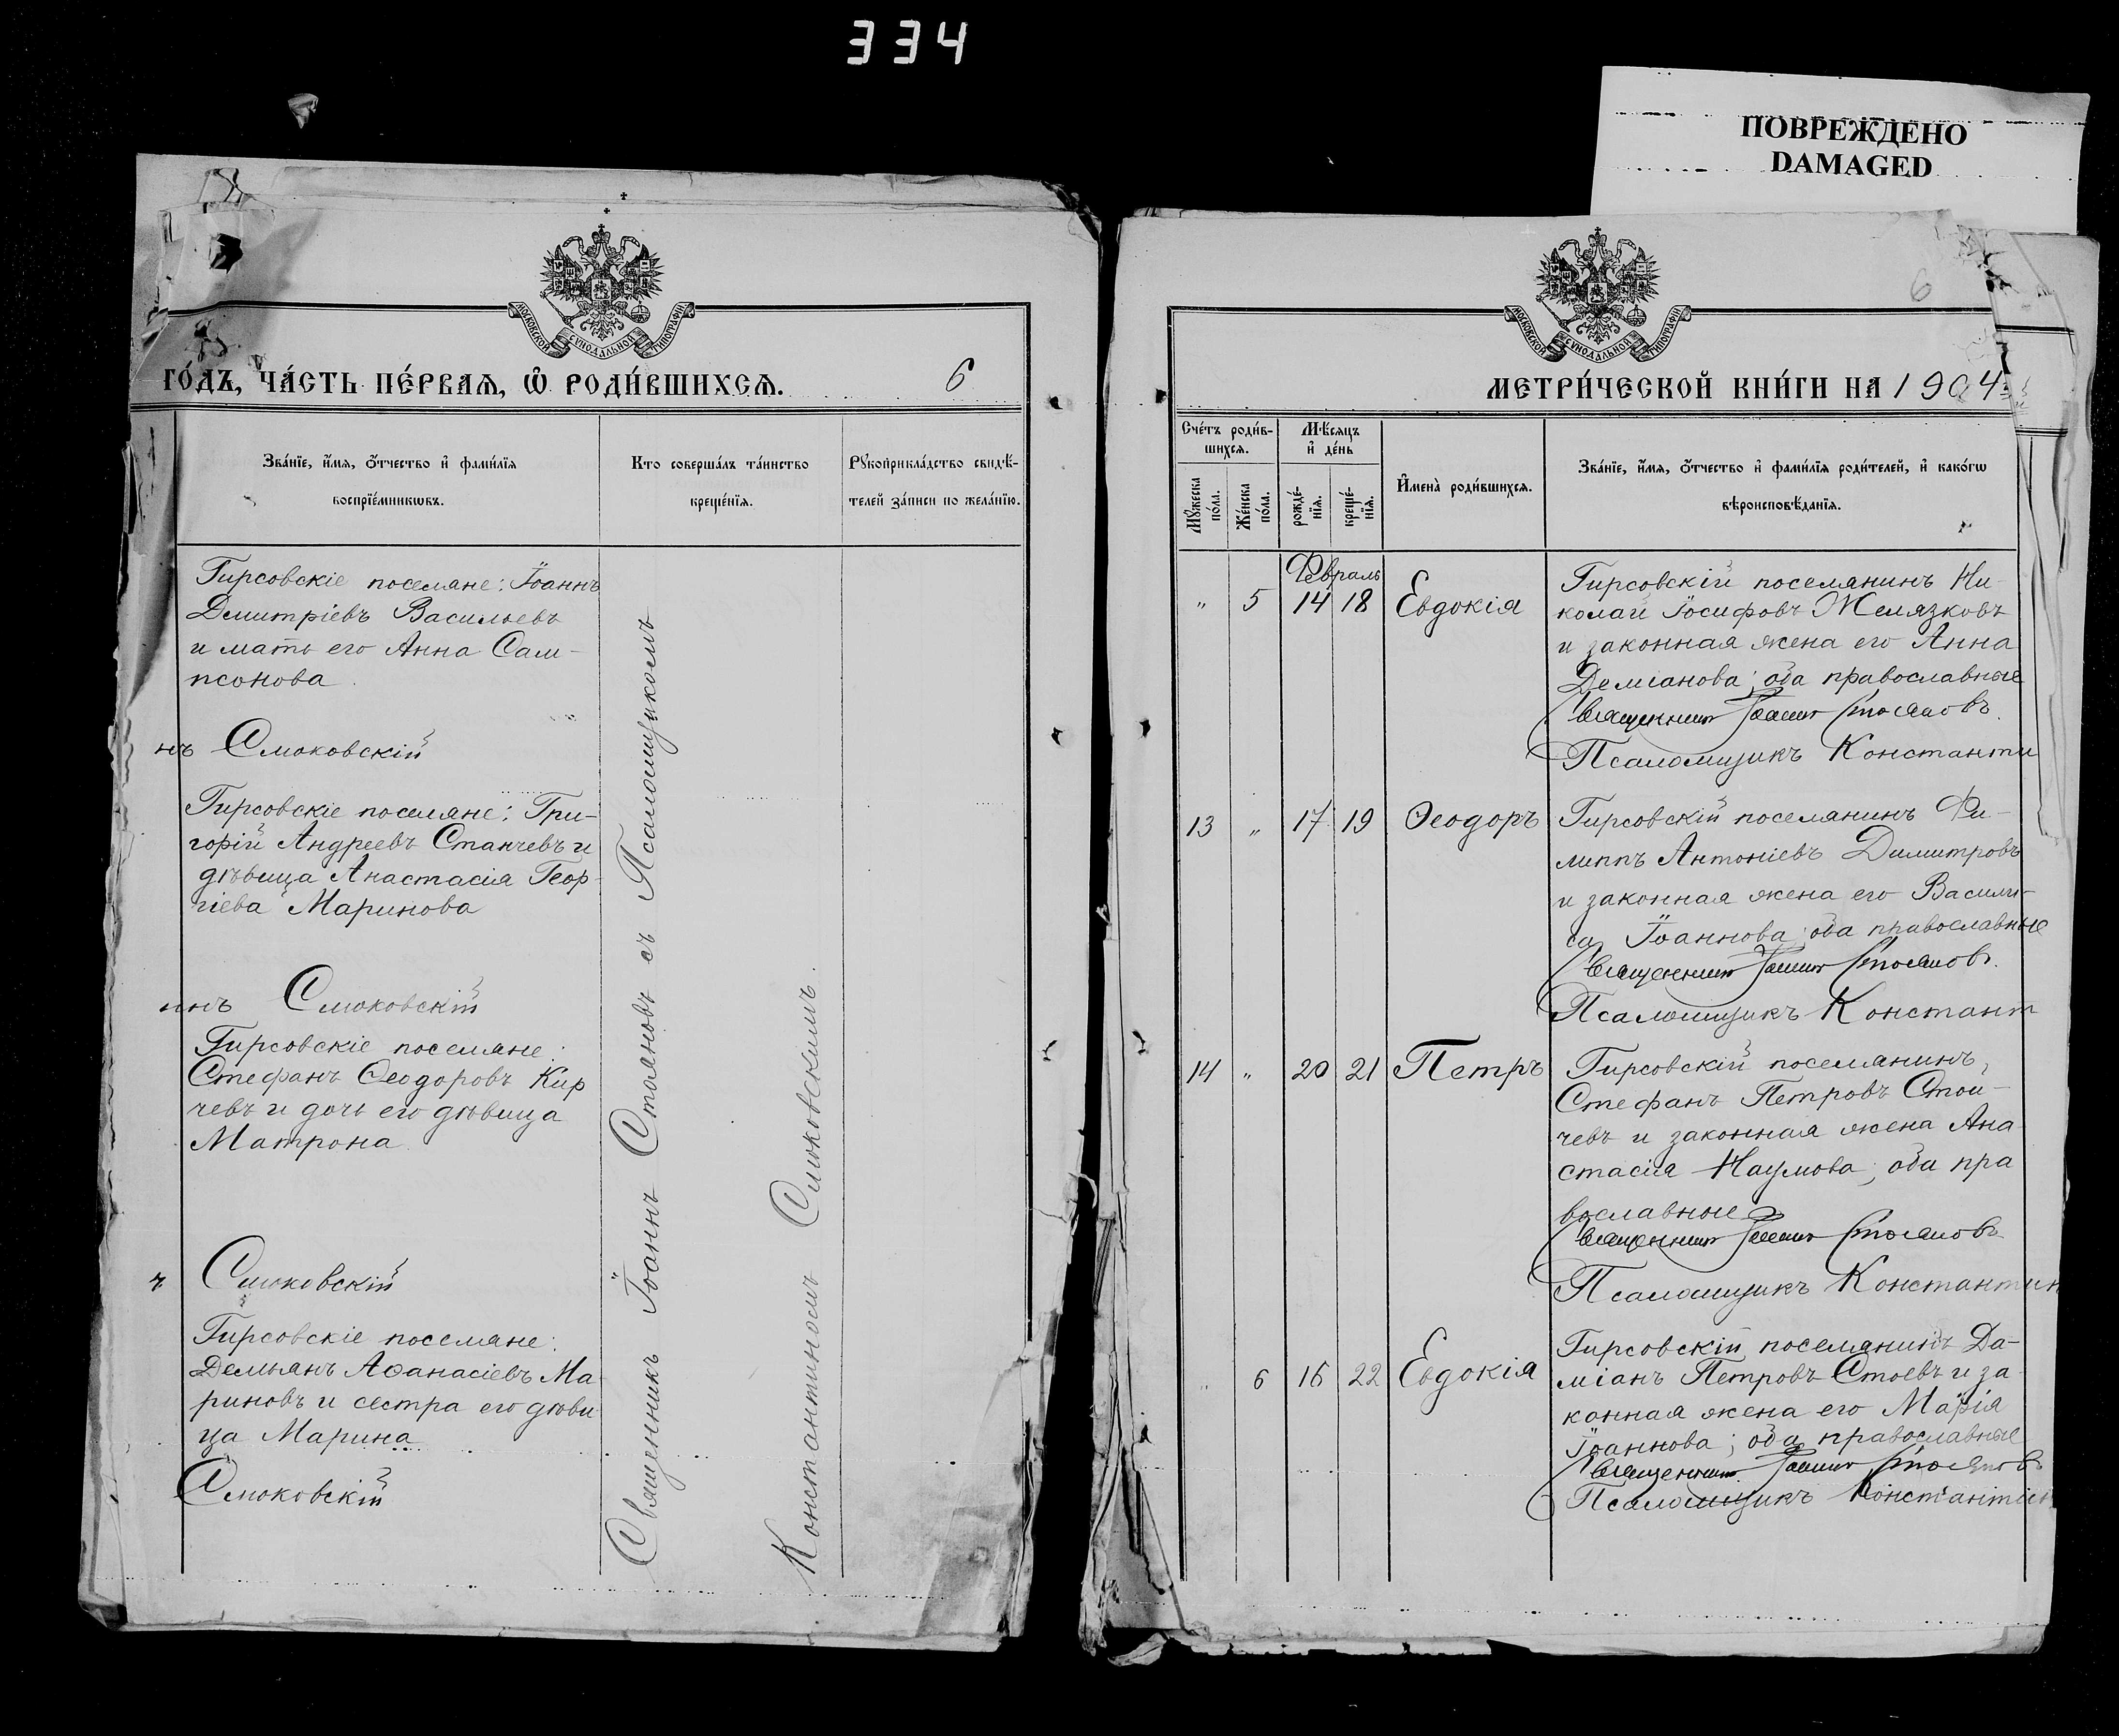 334
ПОВРЕЖДЕНО
DAMAGED
МОСКОВСКОЙ СУНОДАЛЬНОЙ ТИПОГРАФІИ
ГО́ДЪ, ЧА́СТЬ ПЕ́РВАѦ, Ѽ РОДИ́ВШИХСѦ. 6
Зва́нїе, и҆́мѧ, ѻ҆́тчество и҆ фами́лїѧ
воспрїе́мникѡвъ.
Кто соверша́лъ та́инство
креще́нїѧ.
Рꙋкоприкла́дство свидѣ́-
телей за́писи по жела́нїю.
Гирсовскіе поселяне: Іоаннъ
Димитріевъ Васильевъ
и мать его Анна Сам-
псонова
нъ Смоковскій
Гирсовскіе поселяне: Гри-
горій Андреевъ Станчевъ и
дѣвица Анастасія Геор-
гіева Маринова
инъ Смоковскій
Гирсовскіе поселяне:
Стефанъ Ѳеодоровъ Кир
чевъ и дочь его дѣвица
Матрона
ъ Смоковскій
Гирсовскіе поселяне:
Демьянъ Аѳанасіевъ Ма
риновъ и сестра его дѣви
ца Марина
Смоковскій
Священникъ Іоаннъ Стояновъ съ Псаломщикомъ
Константиномъ Смоковскимъ.
6
МОСКОВСКОЙ СУНОДАЛЬНОЙ ТИПОГРАФІИ
МЕТРИ́ЧЕСКОЙ КНИ́ГИ НА 1904
Сче́тъ роди́в-
шихсѧ.
Мꙋ́жеска по́ла.
Же́нска по́ла.
Мѣ́сѧцъ
и҆ де́нь
рожде́-
нїѧ.
креще́-
нїѧ.
И҆мена̀ роди́вшихсѧ.
Зва́нїе, и҆́мѧ, ѻ҆́тчество и҆ фами́лїѧ роди́телей, и҆ како́гѡ
вѣроисповѣ́данїѧ.
Февраль
" 5 14 18 Евдокія
Гирсовскій поселянинъ Ни-
колай Іосифовъ Желязковъ
и законная жена его Анна
Деміанова; оба православные
Священникъ Іоаннъ Стояновъ.
Псаломщикъ Константи
13 " 17 19 Ѳеодоръ
Гирсовскій поселянинъ Фи-
липпъ Антоніевъ Димитровъ
и законная жена его Васили-
са Іоаннова; оба православные
Священникъ Іоаннъ Стояновъ.
Псаломщикъ Константи
14 " 20 21 Петръ
Гирсовскій поселянинъ,
Стефанъ Петровъ Стои-
чевъ и законная жена Ана
стасія Наумова; оба пра
вославные
Священникъ Іоаннъ Стояновъ
Псаломщикъ Константин
" 6 16 22 Евдокія
Гирсовскій поселянинъ Да-
міанъ Петровъ Стоевъ и за-
конная жена его Марія
Іоаннова; оба православные
Священникъ Іоаннъ Стояновъ
Псаломщикъ Константин